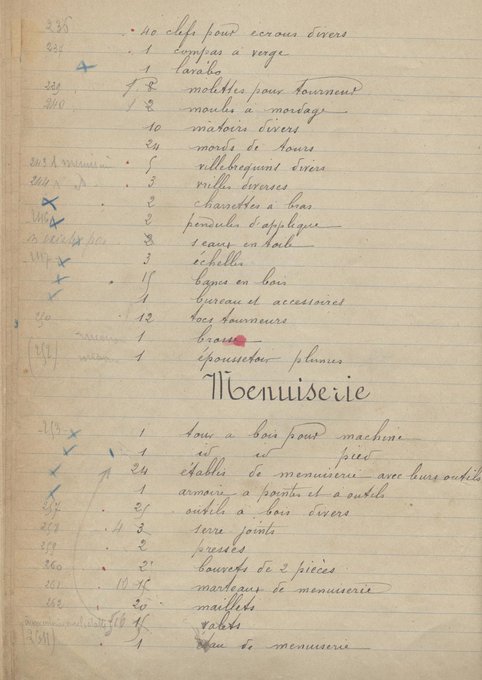 236 40 clefs pour ecrous divers
238 1 compas a verge
1 lavabo
239 8 molettes pour tourneur
240 2 moules a mordage
10 matoirs divers
24 mords de tours
243 5 villebrequins divers
244 3 vrilles diverses
2 charrettes à bras
2 pendules d'applique
2 seaux en toile
3 échelles
15 bancs en bois
1 bureau et accessoires
250 12 tocs tourneurs
1 brosse
(252) 1 époussetoir plumes
Menuiserie
253 1 tour a bois pour machine
1 id id pied
24 établis de menuiserie avec leurs outils
1 armoire a pointes et a outils
257 25 outils a bois divers
258 4 3 serre joints
259 2 presses
260 2 bouvets de 2 pièces
261 10 15 marteaux de menuiserie
262 20 maillets
15 valets
1 étau de menuiserie